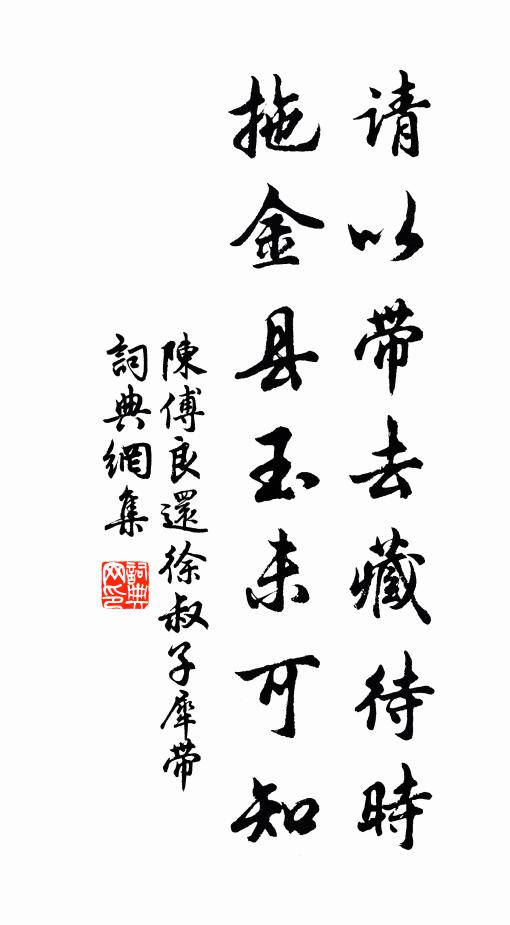 请以带去藏待時
拖金县玉未可知
陳傅良還徐叔子犀带
詞典網集
詞典网印